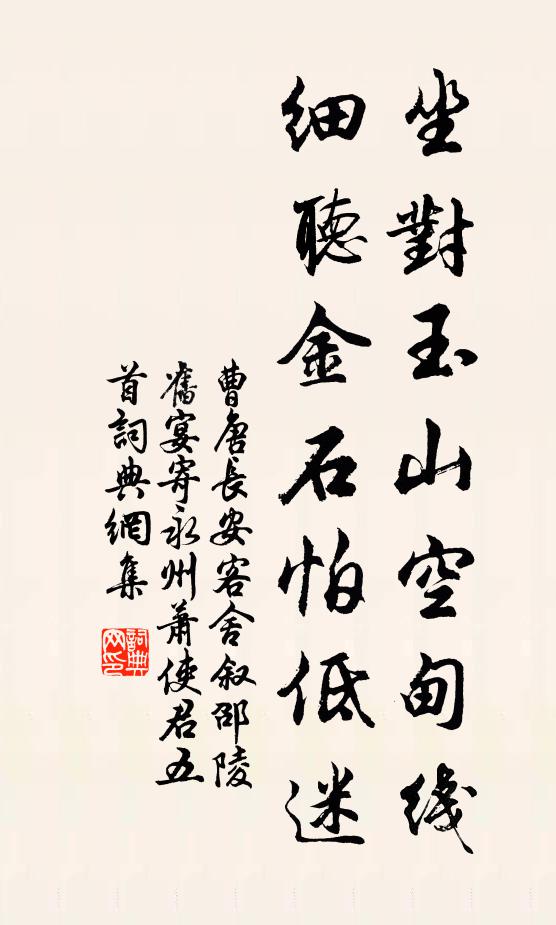 坐對玉山空甸綫
細聽金石怕低迷
曹唐長安客舍叙邵陵
舊宴寄永州蕭使君五
首詞典網集
詞典
网印